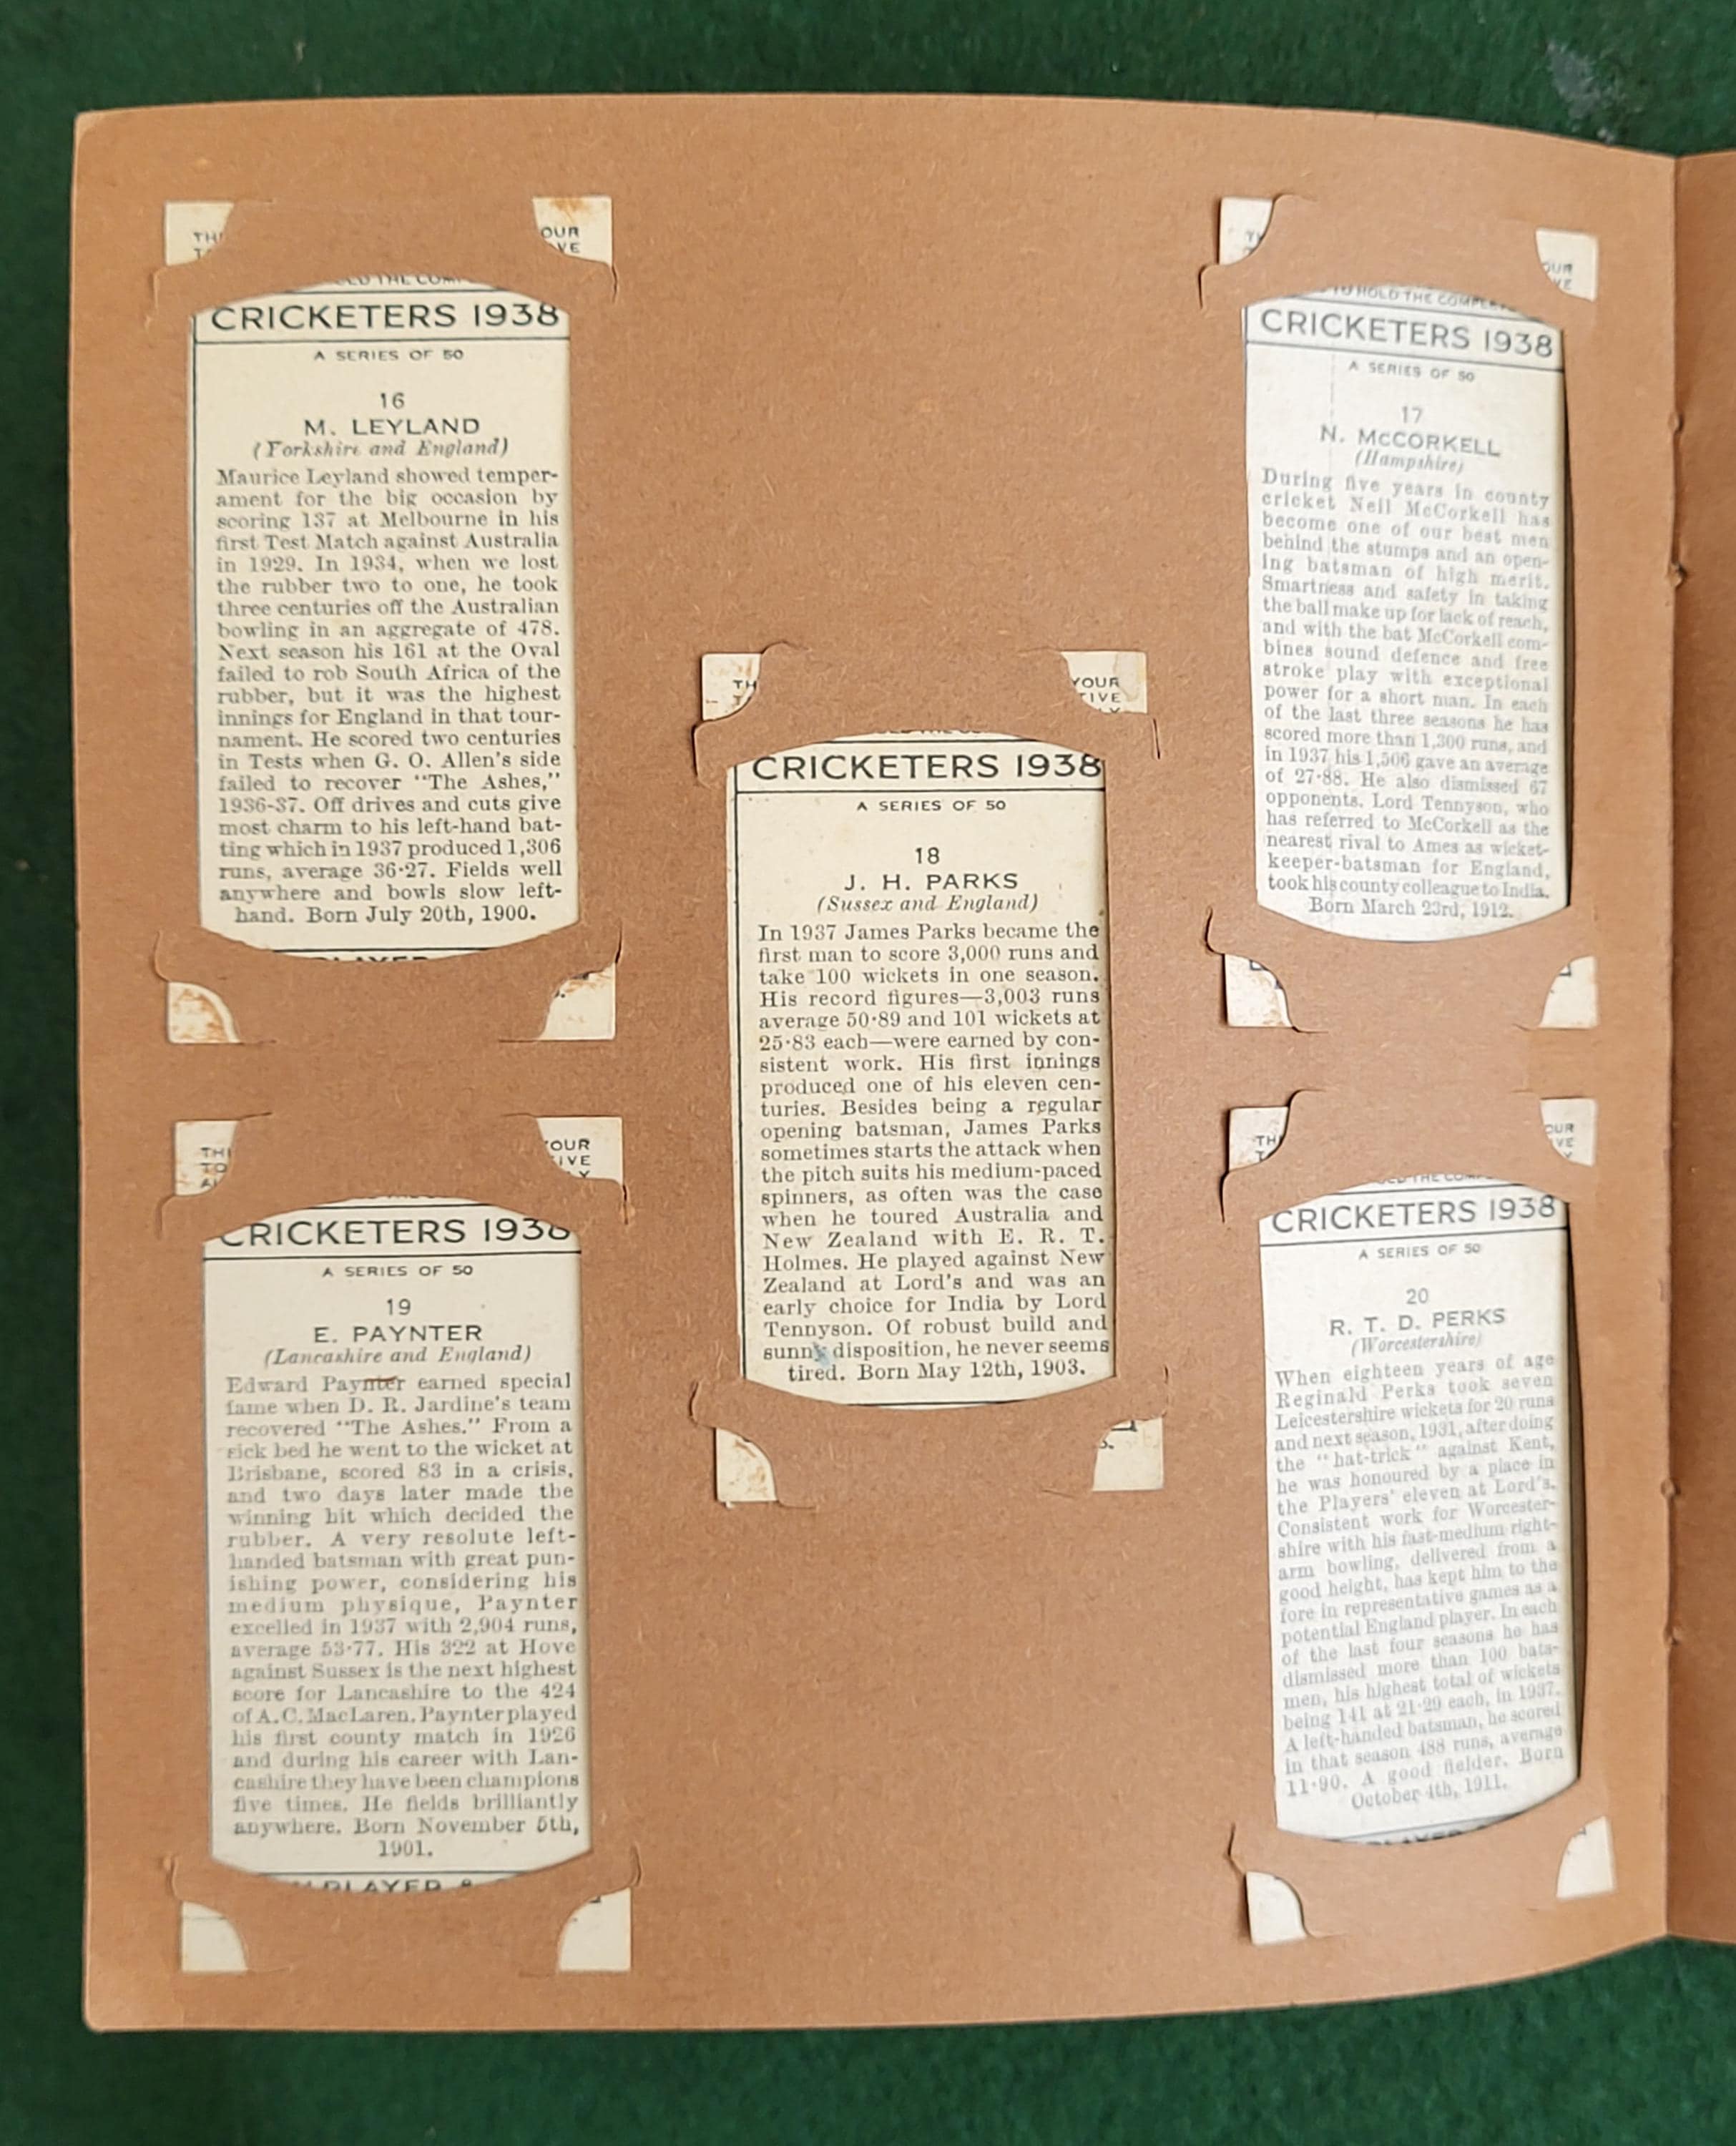 OUR
VE
CRICKETERS 1938
A SERIES OF 50
16
M. LEYLAND
(Yorkshire and England)
Maurice Leyland showed temper-
ament for the big occasion by
scoring 137 at Melbourne in his
first Test Match against Australia
in 1929. In 1934, when we lost
the rubber two to one, he took
three centuries off the Australian
bowling in an aggregate of 478.
Next season his 161 at the Oval
failed to rob South Africa of the
rubber, but it was the highest
innings for England in that tour-
nament. He scored two centuries
in Tests when G. O. Allen's side
failed to recover "The Ashes,"
1936-37. Off drives and cuts give
most charm to his left-hand bat-
ting which in 1937 produced 1,306
runs, average 36·27. Fields well
anywhere and bowls slow left-
hand. Born July 20th, 1900.
PLAYER
TO HOLD THE
CRICKETERS 1938
A SERIES OF 50
17
N. McCORKELL
(Hampshire)
During five years in county
cricket Neil McCorkell has
become one of our best men
behind the stumps and an open-
ing batsman of high merit.
Smartness and safety in taking
the ball make up for lack of reach,
and with the bat McCorkell com-
bines sound defence and free
stroke play with exceptional
power for a short man. In each
of the last three seasons he has
scored more than 1,300 runs, and
in 1937 his 1,506 gave an average
of 27·88. He also dismissed 67
opponents. Lord Tennyson, who
has referred to McCorkell as the
nearest rival to Ames as wicket-
keeper-batsman for England,
took his county colleague to India.
Born March 23rd, 1912.
TH
YOUR
TIVE
CRICKETERS 1938
A SERIES OF 50
18
J. H. PARKS
(Sussex and England)
In 1937 James Parks became the
first man to score 3,000 runs and
take 100 wickets in one season.
His record figures—3,003 runs
average 50·89 and 101 wickets at
25·83 each—were earned by con-
sistent work. His first innings
produced one of his eleven cen-
turies. Besides being a regular
opening batsman, James Parks
sometimes starts the attack when
the pitch suits his medium-paced
spinners, as often was the case
when he toured Australia and
New Zealand with E. R. T.
Holmes. He played against New
Zealand at Lord's and was an
early choice for India by Lord
Tennyson. Of robust build and
sunny disposition, he never seems
tired. Born May 12th, 1903.
TO
OUR
IVE
CRICKETERS 1938
A SERIES OF 50
19
E. PAYNTER
(Lancashire and England)
Edward Paynter earned special
fame when D. R. Jardine's team
recovered "The Ashes." From a
sick bed he went to the wicket at
Brisbane, scored 83 in a crisis,
and two days later made the
winning hit which decided the
rubber. A very resolute left-
handed batsman with great pun-
ishing power, considering his
medium physique, Paynter
excelled in 1937 with 2,904 runs,
average 53·77. His 322 at Hove
against Sussex is the next highest
score for Lancashire to the 424
of A. C. MacLaren. Paynter played
his first county match in 1926
and during his career with Lan-
cashire they have been champions
five times. He fields brilliantly
anywhere. Born November 5th,
1901.
PLAYER &
CRICKETERS 1938
A SERIES OF 50
20
R. T. D. PERKS
(Worcestershire)
When eighteen years of age
Reginald Perks took seven
Leicestershire wickets for 20 runs
and next season, 1931, after doing
the "hat-trick" against Kent,
he was honoured by a place in
the Players' eleven at Lord's.
Consistent work for Worcester-
shire with his fast-medium right-
arm bowling, delivered from a
good height, has kept him to the
fore in representative games as a
potential England player. In each
of the last four seasons he has
dismissed more than 100 bats-
men, his highest total of wickets
being 141 at 21·29 each, in 1937.
A left-handed batsman, he scored
in that season 488 runs, average
11·90. A good fielder. Born
October 4th, 1911.